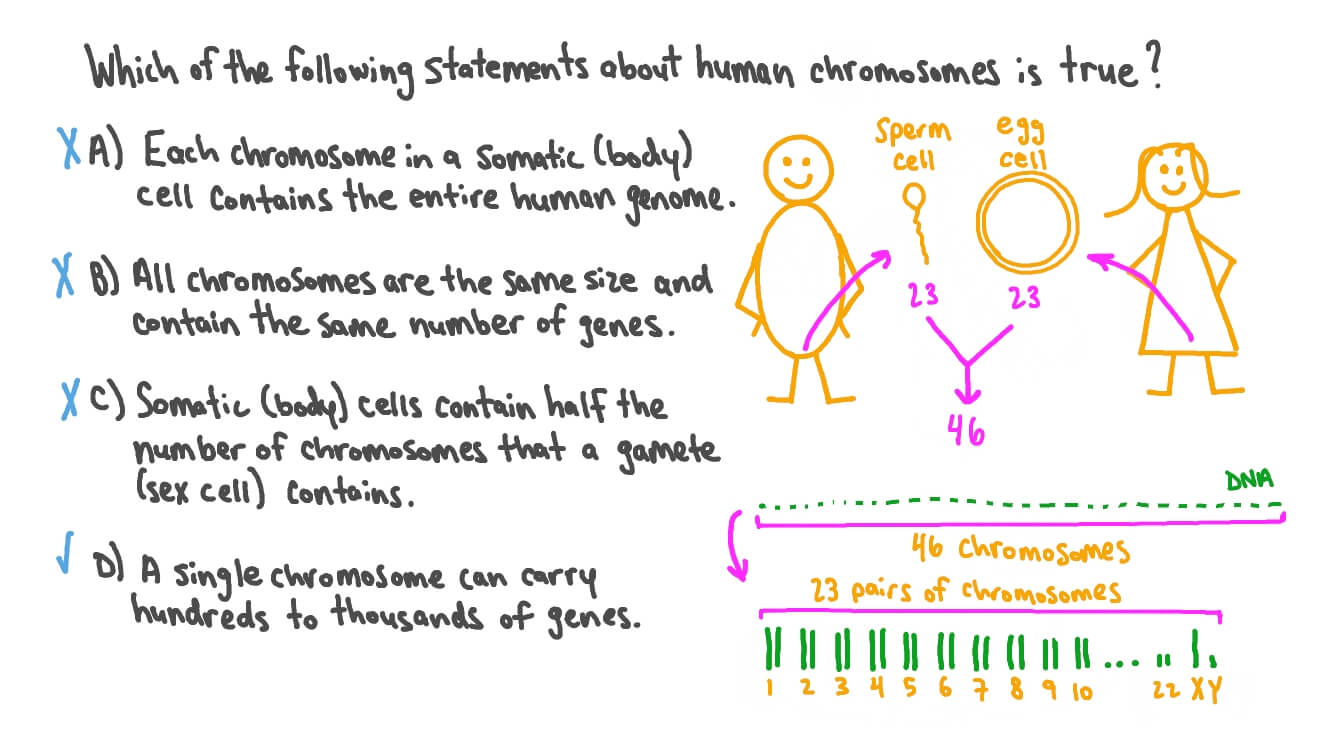 Which of the following statements about human chromosomes is true?
X A) Each chromosome in a somatic (body)
cell contains the entire human genome.
X B) All chromosomes are the same size and
contain the same number of genes.
X C) Somatic (body) cells contain half the
number of chromosomes that a gamete
(sex cell) contains.
✓ D) A single chromosome can carry
hundreds to thousands of genes.
sperm
cell
egg
cell
23
23
46
DNA
46 chromosomes
23 pairs of chromosomes
1 2 3 4 5 6 7 8 9 10 22 X Y